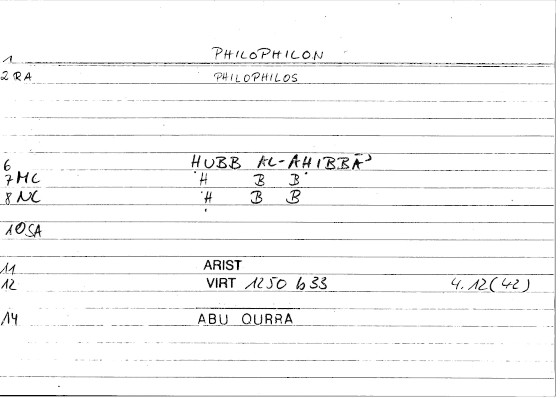 1 PHILOPHILON
2 RA PHILOPHILOS
6 ḤUBB AL-AḤIBBĀʾ
7 MC Ḥ B B
8 NC Ḥ B B
10 SA
11 ARIST
12 VIRT 1250 b33 4.12(42)
14 ABU QURRA